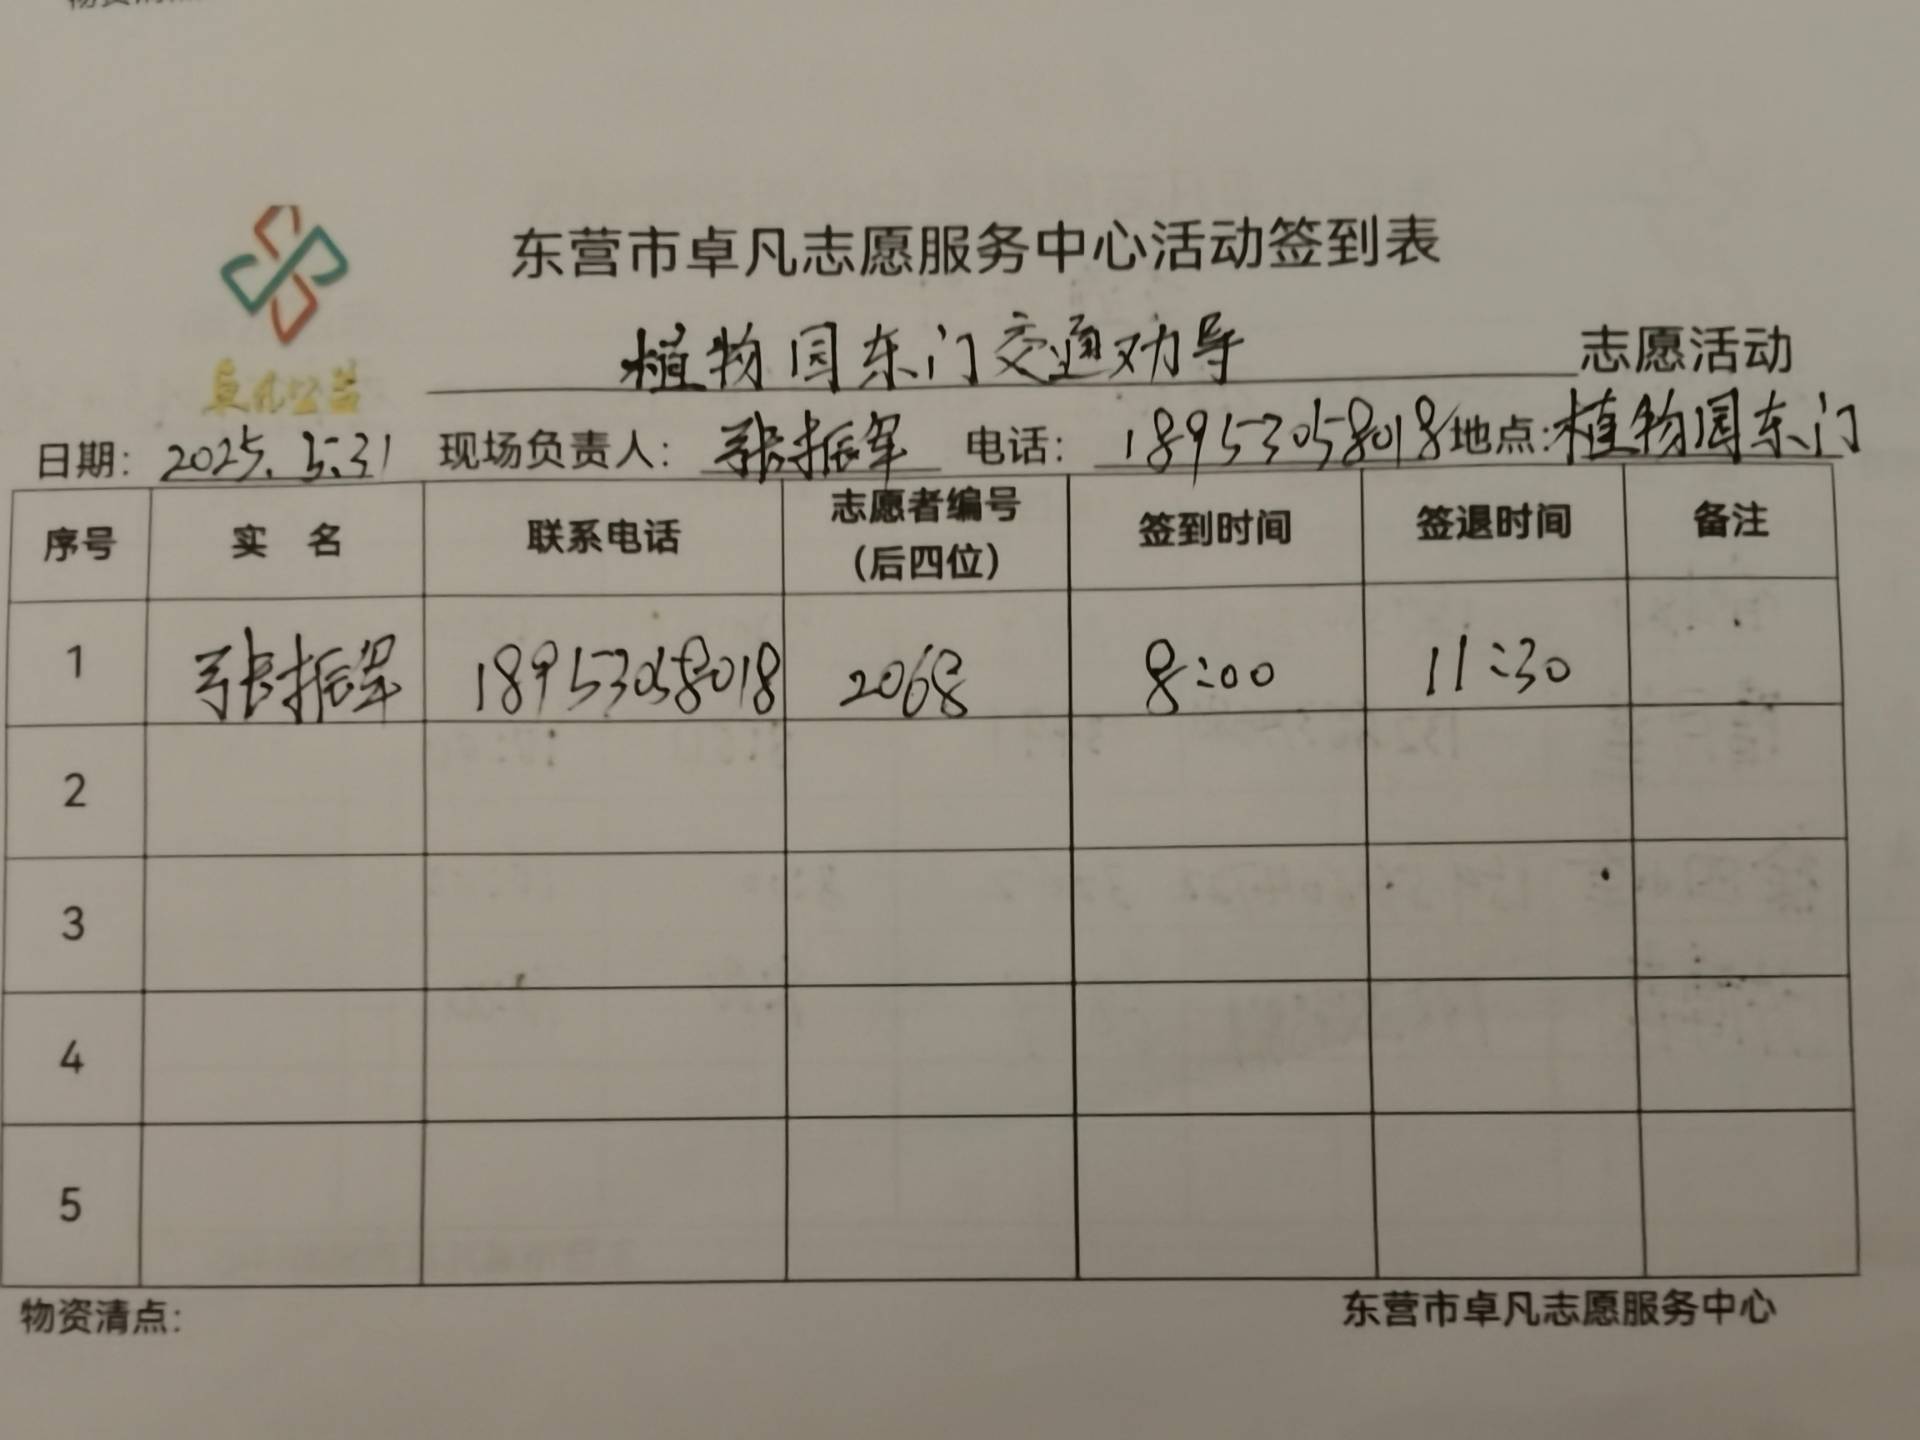 东营市卓凡志愿服务中心活动签到表
植物园东门交通劝导 志愿活动
卓凡公益
日期: 2025.5.31 现场负责人: 张振军 电话: 18953058018 地点: 植物园东门
序号 实 名 联系电话 志愿者编号(后四位) 签到时间 签退时间 备注
1 张振军 18953058018 2068 8:00 11:30
2
3
4
5
物资清点: 东营市卓凡志愿服务中心